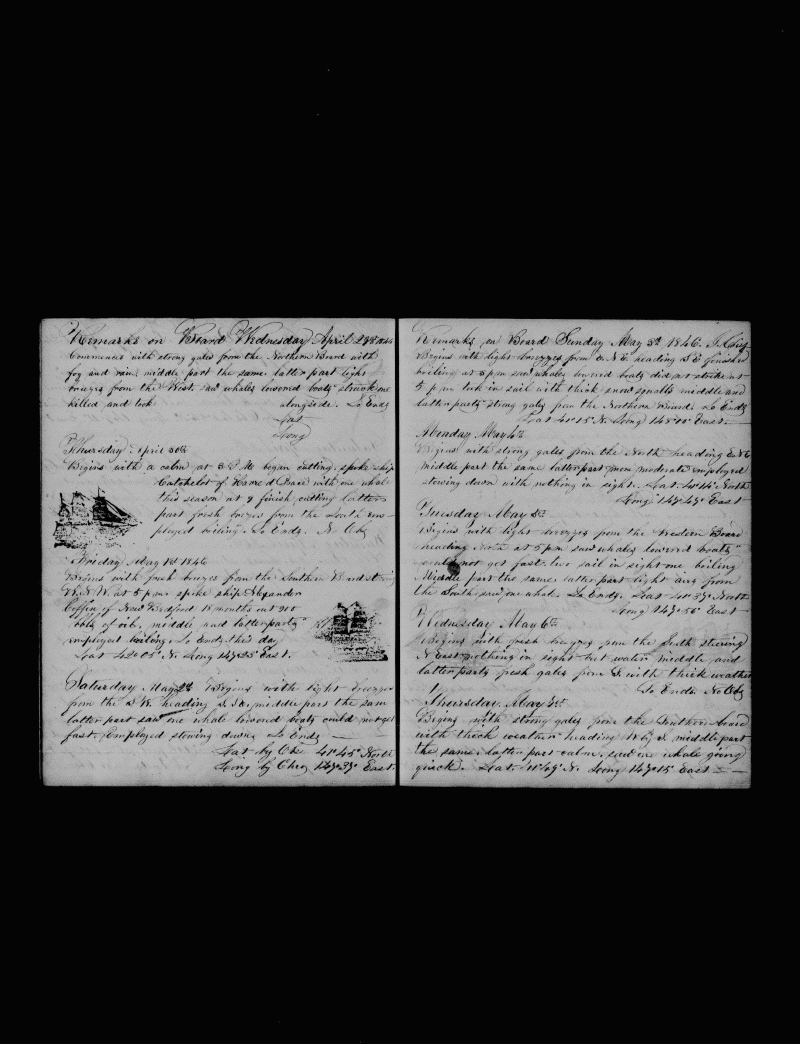 Remarks on Board Wednesday April 29th 1846
Commences with strong gales from the Northern Board with
fog and rain, middle part the same latter part light
breezes from the West. saw whales lowered boats struck one
killed and took alongside. So Ends
Lat
Long
Thursday April 30th
Begins with a calm at 3 P.M. began cutting. spoke ship
Batchelor of with one whale
this season at 9 finish cutting latter
part fresh breezes from the South em-
ployed boiling. So Ends. No Obs
Friday May 1st 1846
Begins with fresh breezes from the Southern Board steering
W.N.W. at 5 pm spoke ship Alexander
Coffin of New Bedford 18 months out 900
bbls of oil, middle and latter parts
employed boiling. So Ends this day
Lat 42°05' N. Long 147°25' East.
Saturday May 2d Begins with light breezes
from the S.W. heading middle part the same
latter part saw one whale lowered boats could not get
fast, Employed stowing down. So Ends
Lat by Obs 41°45' North
Long by Chro 147°37' East.
Remarks on Board Sunday May 3d 1846.
Begins with light breezes from N.E. heading S.E. finished
boiling at 3 pm saw whales lowered boats did not strike at
5 pm took in sail with thick snow squalls middle and
latter parts strong gales from the Northern Board. So Ends
Lat 41°15' N. Long 148°00' East.
Monday May 4th
Begins with strong gales from the North heading
middle part the same latter part more moderate employed
stowing down with nothing in sight. Lat. 41°14' North
Long 147°47' East
Tuesday May 5th
Begins with light breezes from the Western Board
heading North at 5 pm saw whales lowered boats
could not get fast. two sail in sight one boiling
Middle part the same latter part light airs from
the South saw one whale. So Ends. Lat 41°37' North
Long 147°50' East
Wednesday May 6th
Begins with fresh breezes from the South steering
N East nothing in sight but water middle and
latter parts fresh gales from S. with thick weather
So Ends No Obs
Thursday May 7th
Begins with strong gales from the Southern board
with thick weather heading W by S. middle part
the same. latter part calm. saw one whale going
quick. Lat. 41°49' N. Long 147°15' East